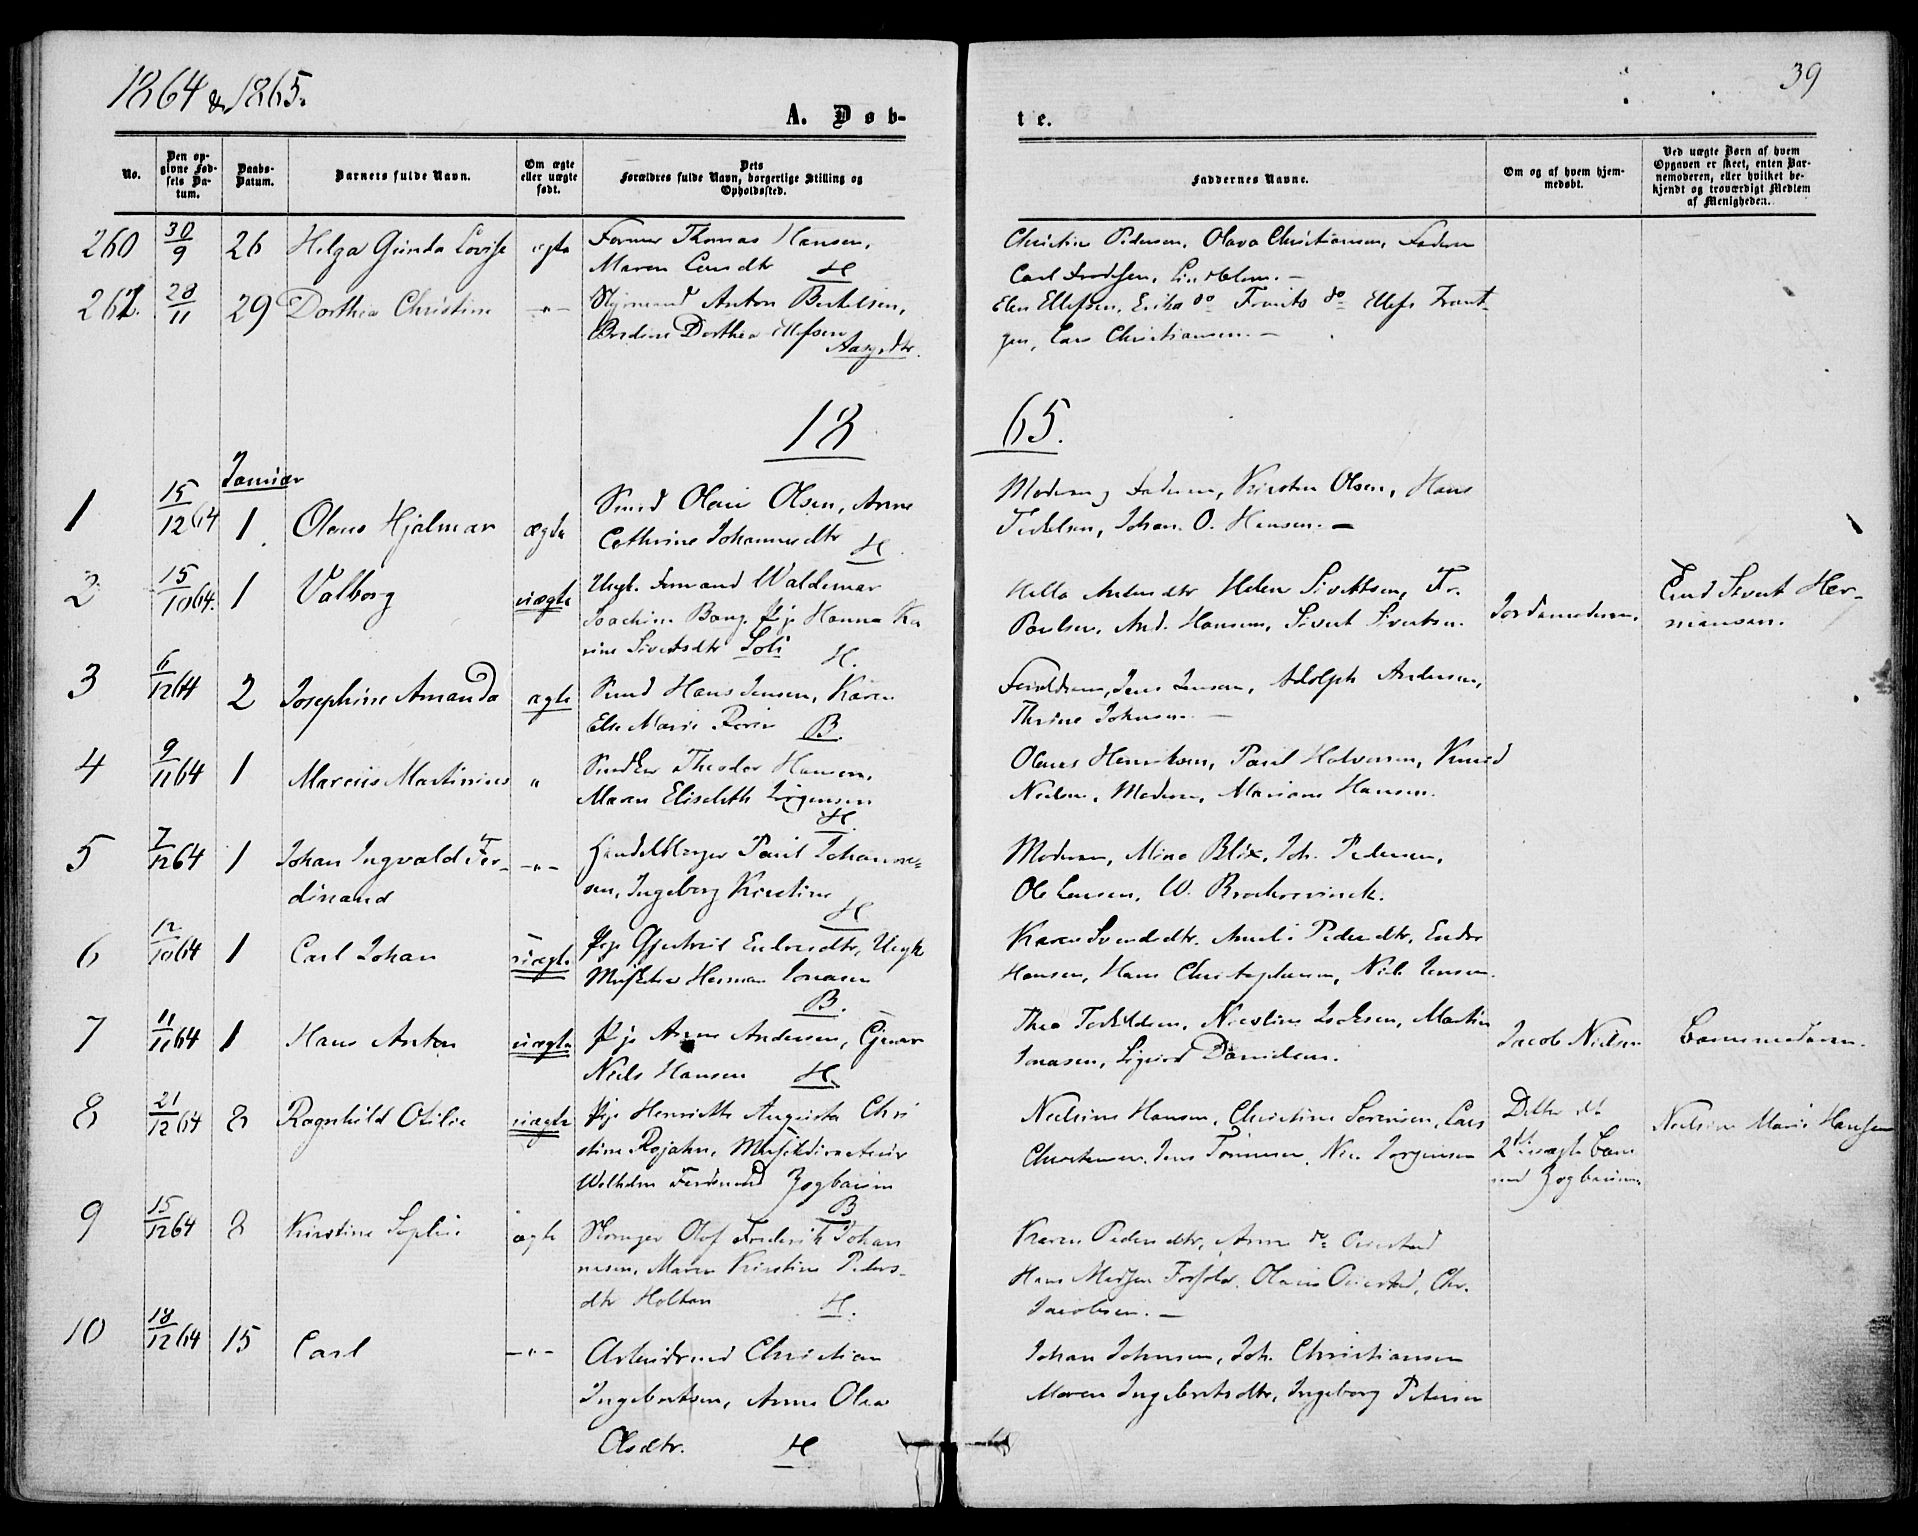 1864 & 1865.
39
A. Døb-
te.
No.
Den op-
givne Fød-
sels Da-
tum.
Daabs-
Datum.
Barnets fulde Navn.
Om ægte
eller uægte
født.
Dets
Forældres fulde Navn, borgerlige Stilling og
Opholdssted.
Faddernes Navne.
Om og af hvem hjem-
medøbt.
Ved uægte Børn af hvem
Opgaven er skeet, enten Bar-
nemoderen, eller hvilket be-
kjendt og troværdigt Medlem
af Menigheden.
260 30/9 26 Helga Gunda Lovise ægte Former Thomas Hansen,
Maren H
Christine Pedersen, Olava Christiansen, Faderen
Carl
261. 28/11 29 Dorthea Christine -"- Styrmand Anton Bertelsen,
Dorthea Ellefsen
Elen Ellefsen, do do Ellefs
Lars Christiansen. -
1865.
Januar
1 15/12 64 1 Olaus Hjalmar ægte Smed Olaus Olsen, Anne
Cathrine Johannesdtr H.
Moderen, Faderen, Kirsten Olsen, Hans
Johan O. Hansen. -
2 15/10 64. 1 Valborg uægte Ungk. Sømand Waldemar
Joachim Bang, Pige Hanna Ka
rine Sivertsdtr H.
Helene Sivertsen, Fr.
Poulsen, And. Hansen, Sivert Sivertsen.
Jordemoderen.
Sivert Her-
mansen.
3 6/12 64 2 Josephine Amanda ægte Smed Hans Jensen, Karen
Else Marie B.
Forældrene, Jens Jensen, Adolph Andersen,
Thrine Johnsen. -
4 9/11 64 1 Marcus Martinius " Theodor Hansen,
Maren Elisabeth Jørgensen
H.
Olaus Henriksen, Paul Halvorsen, Knud
Nielsen, Moderen, Mariane Hansen.
5 7/12 64 1 Johan Ingvald Fer-
dinand
-"- Handelsborger Paul Johanne-
sen, Ingeborg Kirstine
H
Moderen, Mina Blix, Joh. Pedersen,
Ole Larsen, W.
6 12/10 64 1 Carl Johan uægte Pige Endresdtr, Ungk
Herman Jonasen
B.
Karen Svendsdtr. Amalie Pedersdtr, Endre
Hansen, Hans Christophersen, Niels Jensen.
7 11/11 64 1 Hans Anton uægte Pige Anne Andersen,
Niels Hansen H.
Thea Martin
Jonasen, Sigurd Danielsen.
Jacob Nielsen
Barnemoderen.
8 21/12 64 8 Ragnhild Otilie uægte Pige Henriette Augusta Chri
stine Rojahn, Musikdirecteur
Wilhelm Ferdinand Zogbaum
B
Neilsine Hansen, Christine Sørensen, Lars
Christensen, Jens Tønnesen, Jørgensen
Dette dt
2det uægte Barn
med Zogbaum
Neilsine Marie Hansen
9 15/12 64 8 Kirstine Sophie ægte Olof Frederik Johan
nesen, Maren Kirstine Peders-
dtr Holtan H.
Karen Pedersdtr, Anne do
Hans Madsen Olaus Chr.
Jacobsen. -
10 18/12 64 15 Carl -"- Arbeidsmd Christian
Ingebretsen, Anne Olea
Olsdtr. H
Johan Johnsen, Joh. Christiansen
Maren Ingebretsdtr, Ingeborg Petersen